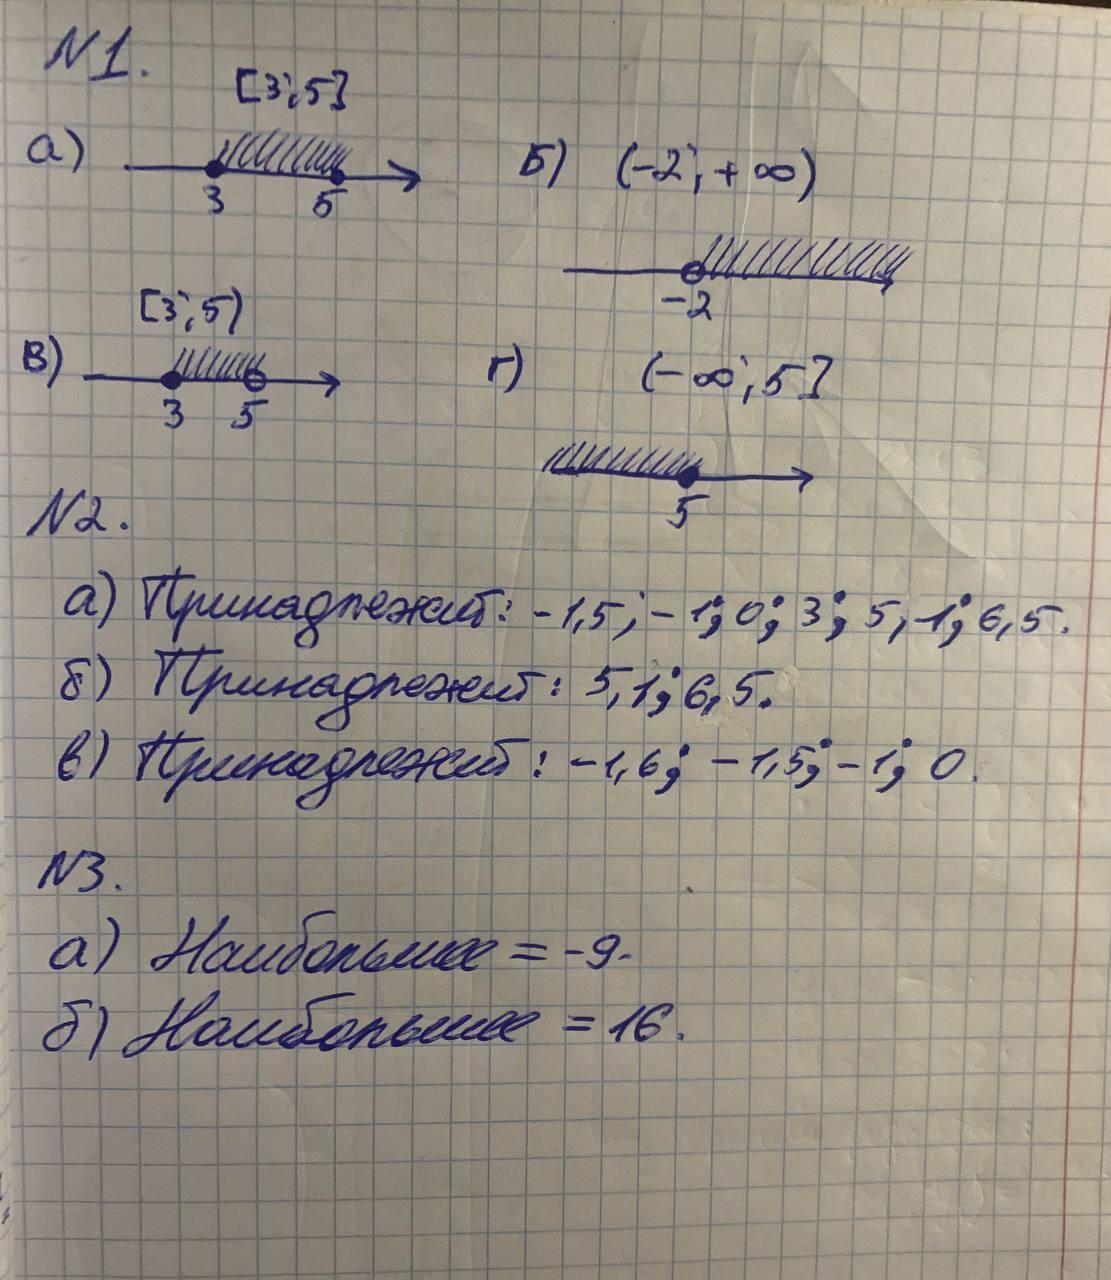 N1.
[3;5]
а)
3 5
Б) (-2; +∞)
-2
[3;5)
в)
3 5
г) (-∞; 5]
5
N2.
а) Принадлежит: -1,5; -1; 0; 3; 5,-1; 6,5.
б) Принадлежит: 5,1; 6,5.
в) Принадлежит: -1,6; -1,5; -1; 0.
N3.
а) Наибольшее = -9.
б) Наибольшее = 16.